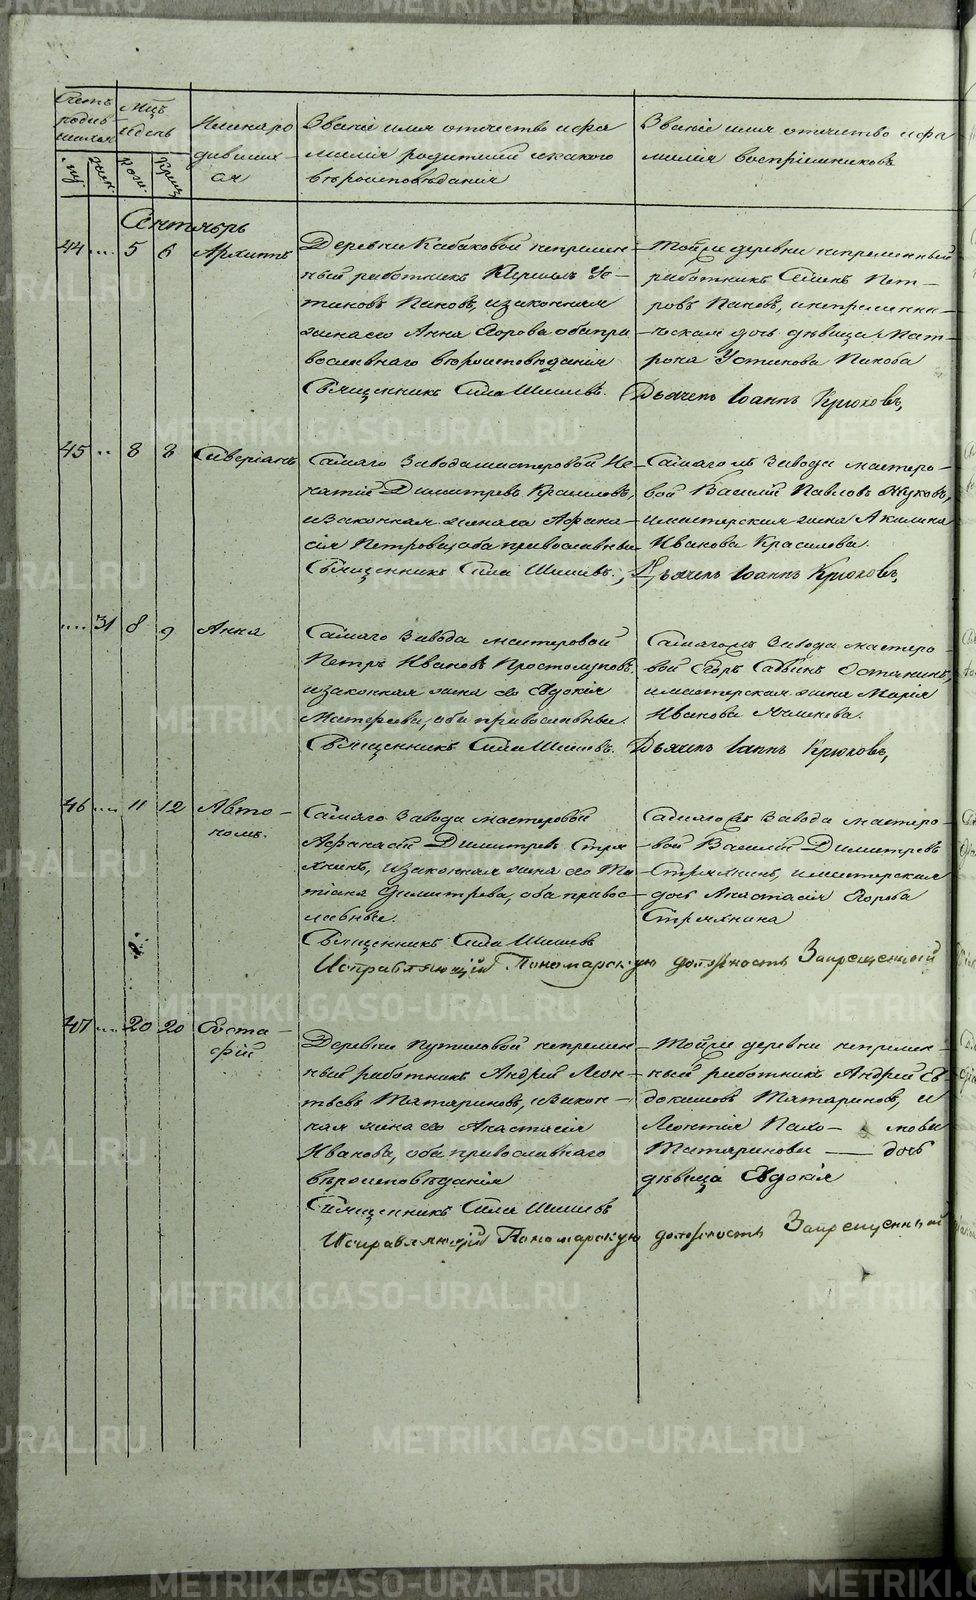 METRIKI.GASO-URAL.RU
Счетъ родив шихся
Мцъ и день
Имена родившихся
Званіе имя отчество и фа
милія родителей и какого
вѣроисповѣданія
Званіе имя отчество и фа
милія воспріемниковъ
му. жен. рож. крещ.
Сентябрь
44 .... 5 6 Архиппъ
Деревни Кабаковой непремен
ный работникъ Кирилъ Ус-
тиновъ Пановъ, и законная
жена его Анна Егорова оба пра
вославнаго вероисповеданія
Священникъ Сила Шишевъ.
Тойже деревни непременный
работникъ Семенъ Пет-
ровъ Пановъ, и непременни-
ческая дочь дѣвица Мат-
рона Устинова Панова
Дьячекъ Іоаннъ Крюковъ,
45 .. 8 8 Сиверіанъ
Самаго Завода мастеровой Иг
натій Димитревъ Красиловъ,
и законная жена его Афана-
сія Петрова, оба православные
Священникъ Сила Шишевъ.,
Самагожъ Завода мастеро-
вой Василій Павловъ Жуковъ,
и мастерская жена Акилина
Иванова Красилова.
Дьячекъ Іоаннъ Крюковъ,
.... 31 8 9 Анна
Самаго Завода мастеровой
Петръ Ивановъ Простолуповъ,
и законная жена его Евдокія
Матвеева, оба православные.
Священникъ Сила Шишевъ.
Самагожъ Завода мастеро-
вой Егоръ Савинъ Останинъ,
и мастерская жена Марія
Иванова
Дьячекъ Іаннъ Крюковъ,
46 .... 11 12 Авто-
номъ.
Самаго Завода мастеровой
Афанасій Димитревъ Стря
хнинъ, и законная жена его Та
тіана Димитрева, оба право-
лавные.
Священникъ Сила Шишевъ
Самагожъ Завода мастеро-
вой Василій Димитревъ
Стряхнинъ, и мастерская
дочь Анастасія Егорова
Стряхнина
Исправляющій Пономарскую должность Запрещенный
47 .... 20 20 Евста-
фій
Деревни Путиловой непремен
ный работникъ Андрей Леон-
тьевъ Татариновъ, и закон-
ная жена его Анастасія
Иванова, оба православнаго
вѣроисповѣданія
Священникъ Сила Шишевъ
Тойже деревни непремен-
ный работникъ Андрей Ев
докимовъ Татариновъ, и
Леонтія Пахо- мова
Татаринова — дочь
дѣвица Евдокія
Исправляющій Пономарскую должность Запрещенный